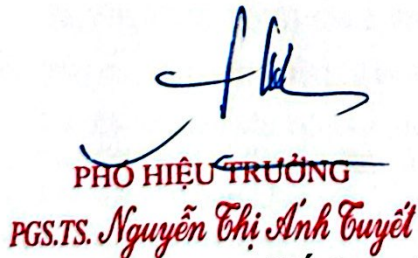 PHÓ HIỆU TRƯỞNG
PGS.TS. Nguyễn Thị Ánh Tuyết